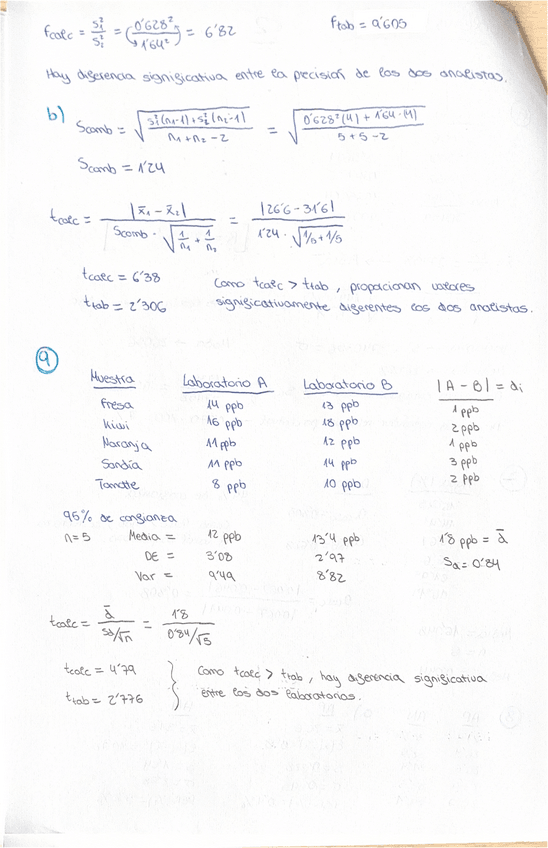 Fcalc = S₁²/S₂² = (0'628²/1'64²) = 6'82 Ftab = 9'605
Hay diferencia significativa entre la precisión de los dos analistas.
b) Scomb = √((S₁²(n₁-1)+S₂²(n₂-1))/(n₁+n₂-2)) = √((0'628²(4) + 1'64·(4))/(5+5-2))
Scomb = 1'24
tcalc = |x̄₁ - x̄₂|/(Scomb · √(1/n₁ + 1/n₂)) = |26'6 - 31'6|/(1'24 · √(1/5 + 1/5))
tcalc = 6'38 Como tcalc > ttab, proporcionan valores
ttab = 2'306 significativamente diferentes los dos analistas.
9
Muestra Laboratorio A Laboratorio B |A - B| = di
Fresa 14 ppb 13 ppb 1 ppb
Kiwi 16 ppb 18 ppb 2 ppb
Naranja 11 ppb 12 ppb 1 ppb
Sandía 11 ppb 14 ppb 3 ppb
Tomate 8 ppb 10 ppb 2 ppb
95% de confianza
n=5 Media = 12 ppb 13'4 ppb 1'8 ppb = d̄
DE = 3'08 2'97 Sd = 0'84
Var = 9'49 8'82
tcalc = d̄/(Sd/√n) = 1'8/(0'84/√5)
tcalc = 4'79 } Como tcalc > ttab, hay diferencia significativa
ttab = 2'776 entre los dos laboratorios.